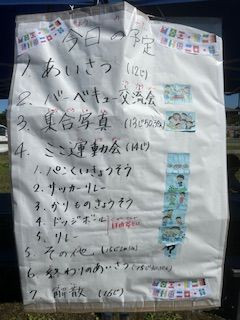 今日の予定
1. あいさつ (12じ)
2. バーベキュー交流会
3. 集合写真 (13じ50ぷん)
4. ミニ運動会 (14じ)
1. パンくいきょうそう
2. サッカーリレー
3. かりものきょうそう
4. ドッジボール
5. リレー
5. その他
6. 終わりのあいさつ
7. 解散 (16じ)